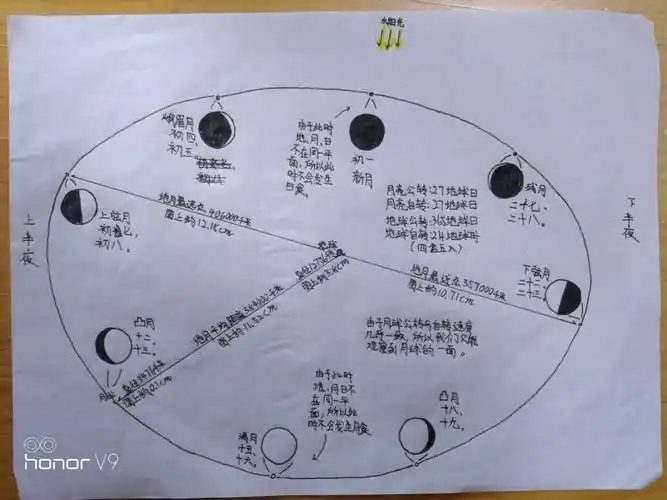 太阳光
峨眉月
初四、
初五、
由于此时
地、月、日
不在同一平
面,所以此
时不会发生
日食。
初一
新月
残月
二十七、
二十八。
月亮公转:27地球日
月亮自转:27地球日
地球公转:365地球日
地球自转:24地球时
(四舍五入)
上半夜
下半夜
上弦月
初七、
初八。
地月最远点406000千米
图上约12.18cm
地球
直径12756千米
地月最近点357000千米
图上约10.71cm
下弦月
二十二、
二十三。
地月平均距离384000千米
图上约11.52cm
由于月球公转与自转速度
几乎一致,所以我们只能
观察到月球的一面。
凸月
十二、
十三。
月球
直径3476千米
图上约0.1cm
由于此时
地、月、日不
在同一平
面,所以此
时不会发生月食
满月
十五、
十六。
凸月
十八、
十九。
honor V9